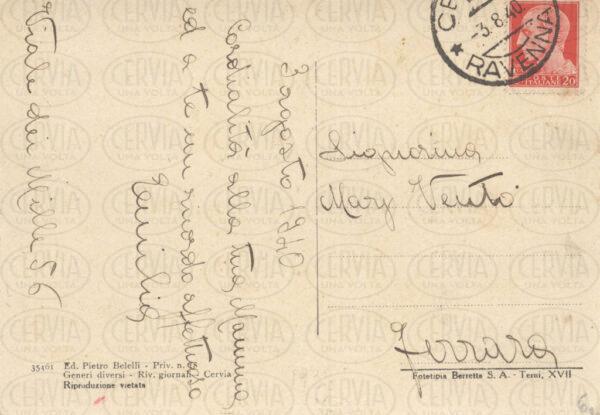 3 agosto 1940.
Cordialità alla tua Mamma
ed a te un ricordo affettuoso
Viale dei Mille 56
Signorina
Mary
Ferrara
-3.8.40
★ RAVENNA
POSTE
ITALIANE 20
35461 Ed. Pietro Belelli - Priv. n.
Generi diversi - Riv. giornali - Cervia
Riproduzione vietata
Fototipia Berretta S. A. - Terni, XVII
CERVIA
UNA VOLTA